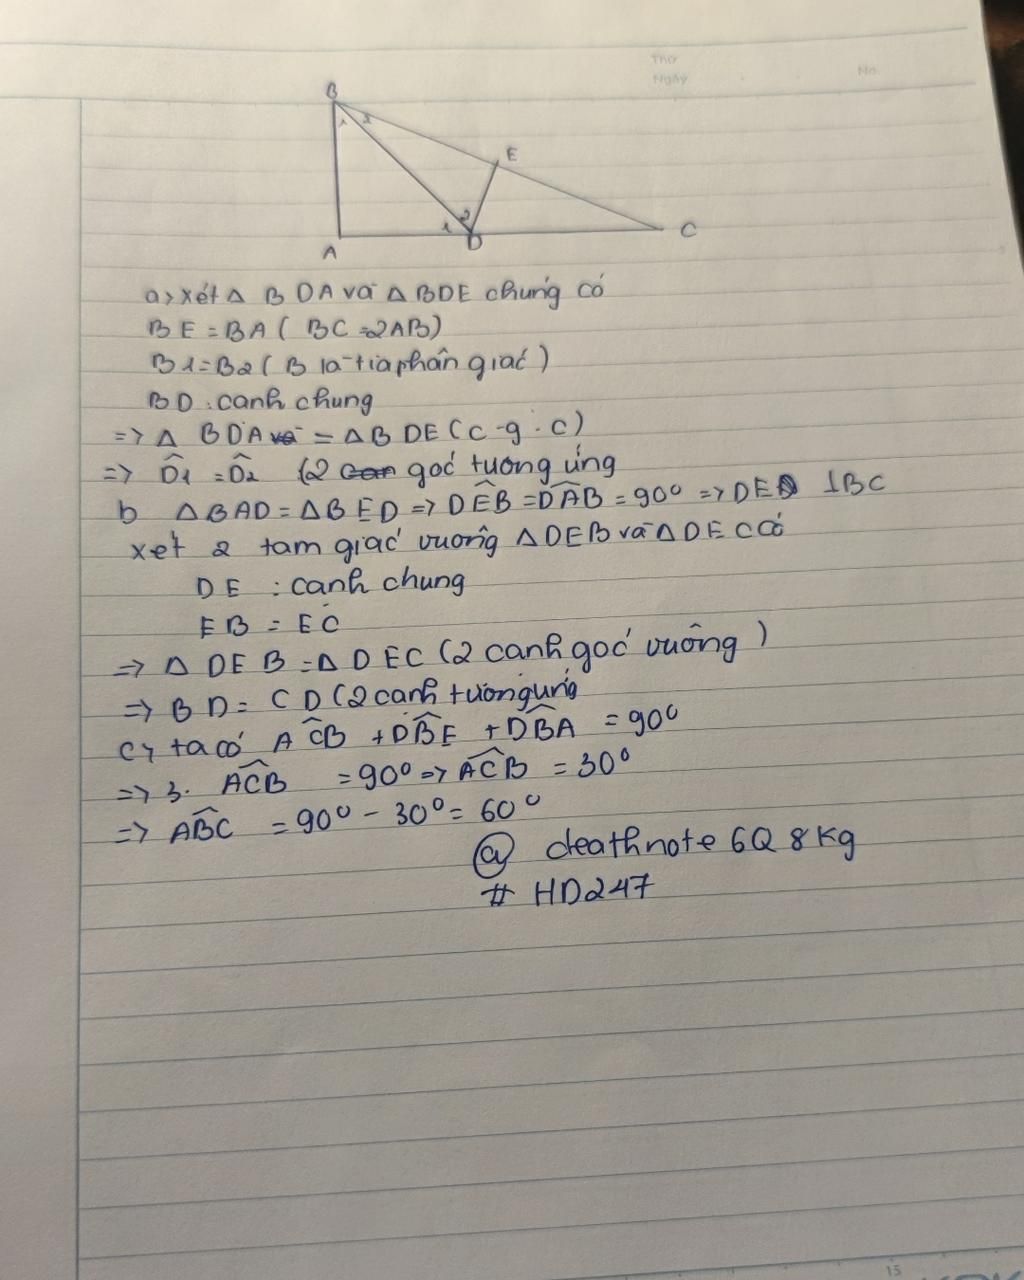 Thứ
Ngày
No.
B
1 2
E
1 2
A
D
C
a, xét Δ BDA và Δ BDE chúng có
BE = BA ( BC = 2AB)
B1 = B2 ( B là tia phân giác )
BD : canh chung
=> Δ BDA = Δ BDE (c - g . c)
=> D̂1 = D̂2 (2 goć tương ứng
b ΔBAD = ΔBED => DÊB = DÂB = 90° => DE ⊥BC
xet 2 tam giác vuông ΔDEB và ΔDEC có
DE : canh chung
EB = EC
=> Δ DEB = Δ DEC (2 canh goć vuông )
=> BD = CD (2 canh tương ưng
c, ta có AĈB + DB̂E + DB̂A = 90°
=> 3. AĈB = 90° => AĈB = 30°
=> AB̂C = 90° - 30° = 60°
@ deathnote 6Q 8 Kg
# HD247
15